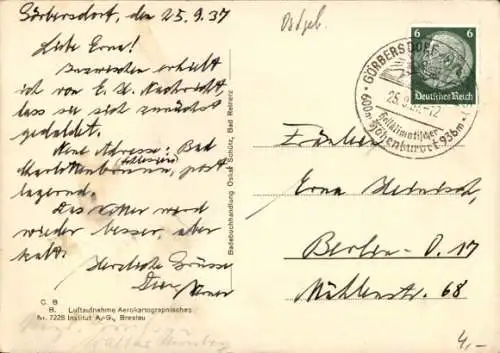 Görbersdorf, den 25.9.37
Liebe Erna!
Inzwischen erhielt
ich von E. H. Nachricht
dass sie sich zunächst
geduldet.
Neue Adresse: Bad
Charlottenbrunn, post
(Schlesien)
lagernd.
Das Wetter ward
wieder besser, aber
kalt.
Herzliche Grüsse
Dein
Werner
C. B
B. Luftaufnahme Aerokartographisches
Nr. 7228 Institut A.-G., Breslau
Badebuchhandlung Oskar Schütz, Bad Reinerz
Ostgeb.
GÖRBERSDORF
25.9.37-12
Heilklimatischer
Höhenkurort
600m
936m
6 6
Deutsches Reich
Fräulein
Erna
Berlin-O. 17
Mühlenstr. 68
4,-